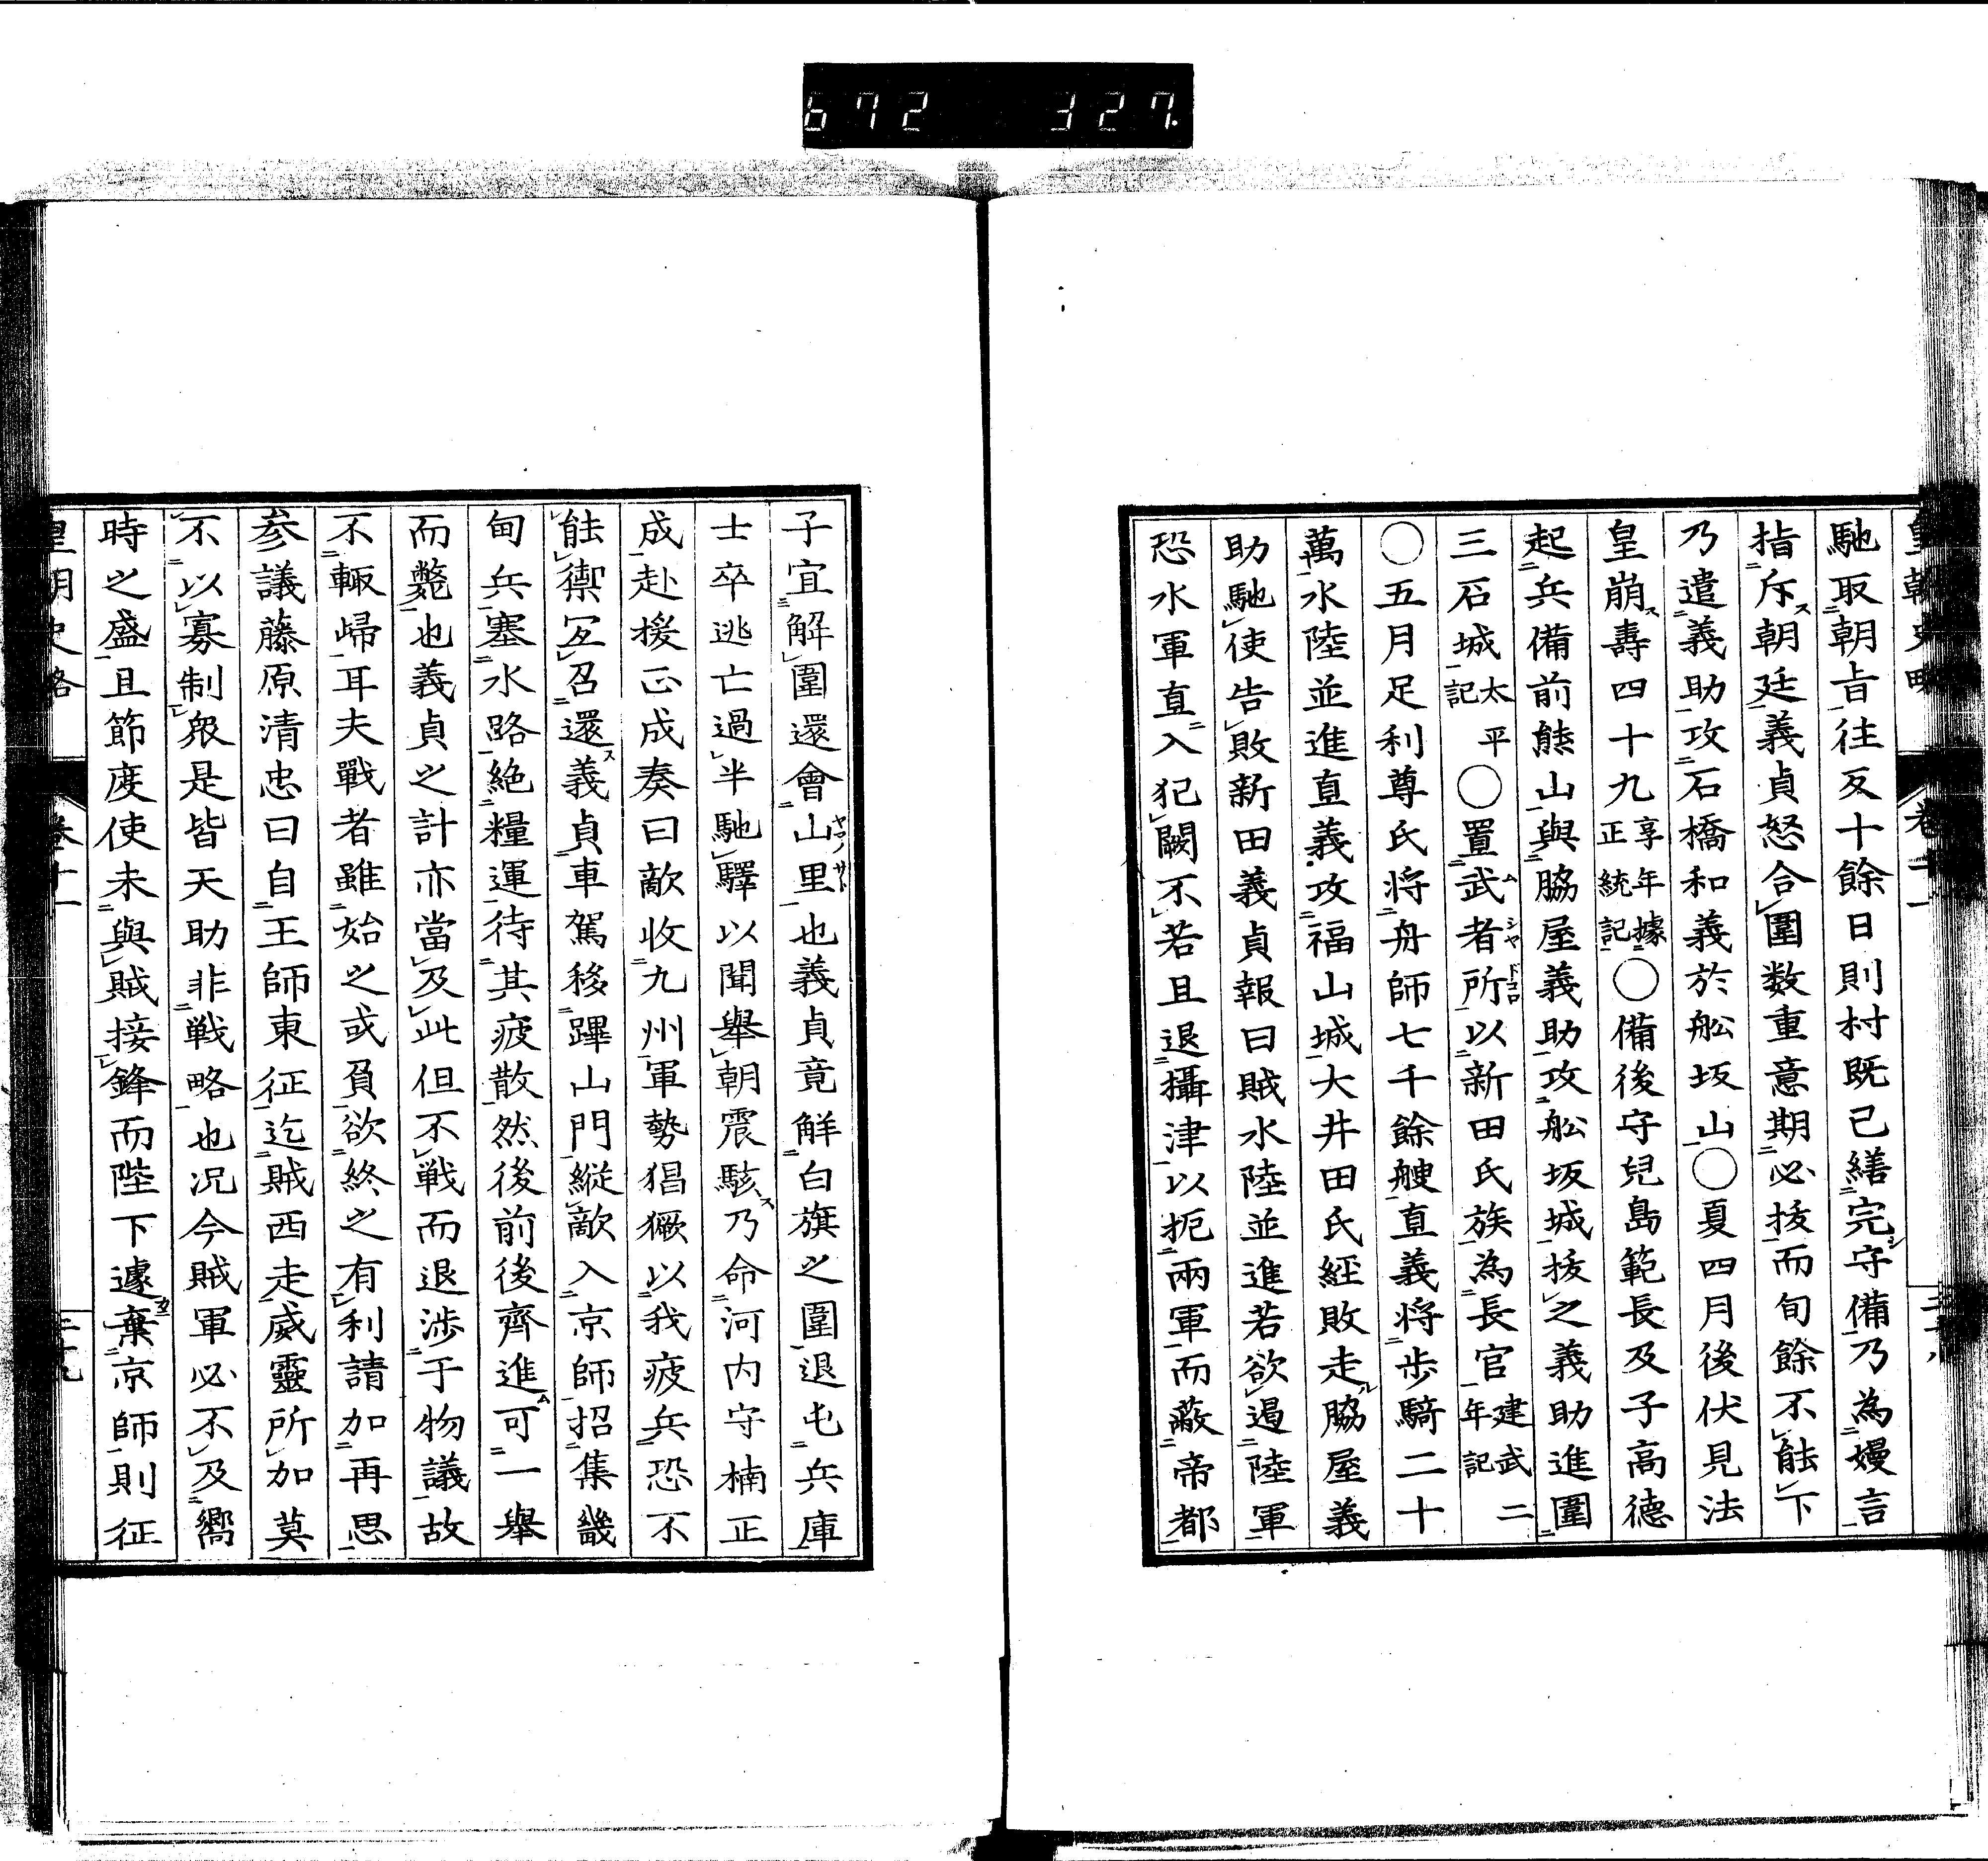 672 327
皇朝史略 卷十一
馳取朝旨往反十餘日則村既已繕完守備乃為嫚言
指斥朝廷義貞怒合圍数重意期必抜而旬餘不能下
乃遣義助攻石橋和義於舩坂山○夏四月後伏見法
皇崩壽四十九享年據正統記○備後守兒島範長及子高德
起兵備前熊山與脇屋義助攻舩坂城抜之義助進圍
三石城太平記○置武者所以新田氏族為長官建武二年記
○五月足利尊氏将舟師七千餘艘直義将歩騎二十
萬水陸並進直義攻福山城大井田氏經敗走脇屋義
助馳使告敗新田義貞報曰賊水陸並進若欲遏陸軍
恐水軍直入犯闕不若且退攝津以扼兩軍而蔽帝都
子宜解圍還會山里也義貞竟解白旗之圍退屯兵庫
士卒逃亡過半馳驛以聞舉朝震駭乃命河内守楠正
成赴援正成奏曰敵收九州軍勢猖獗以我疲兵恐不
能禦宜召還義貞車駕移蹕山門縦敵入京師招集畿
甸兵塞水路絶糧運待其疲散然後前後齊進可一舉
而斃也義貞之計亦當及此但不戦而退渉于物議故
不輙歸耳夫戰者雖始之或負欲終之有利請加再思
参議藤原清忠曰自王師東征迄賊西走威靈所加莫
不以寡制衆是皆天助非戦略也况今賊軍必不及嚮
時之盛且節度使未與賊接鋒而陛下遽棄京師則征
皇朝史略 卷十一